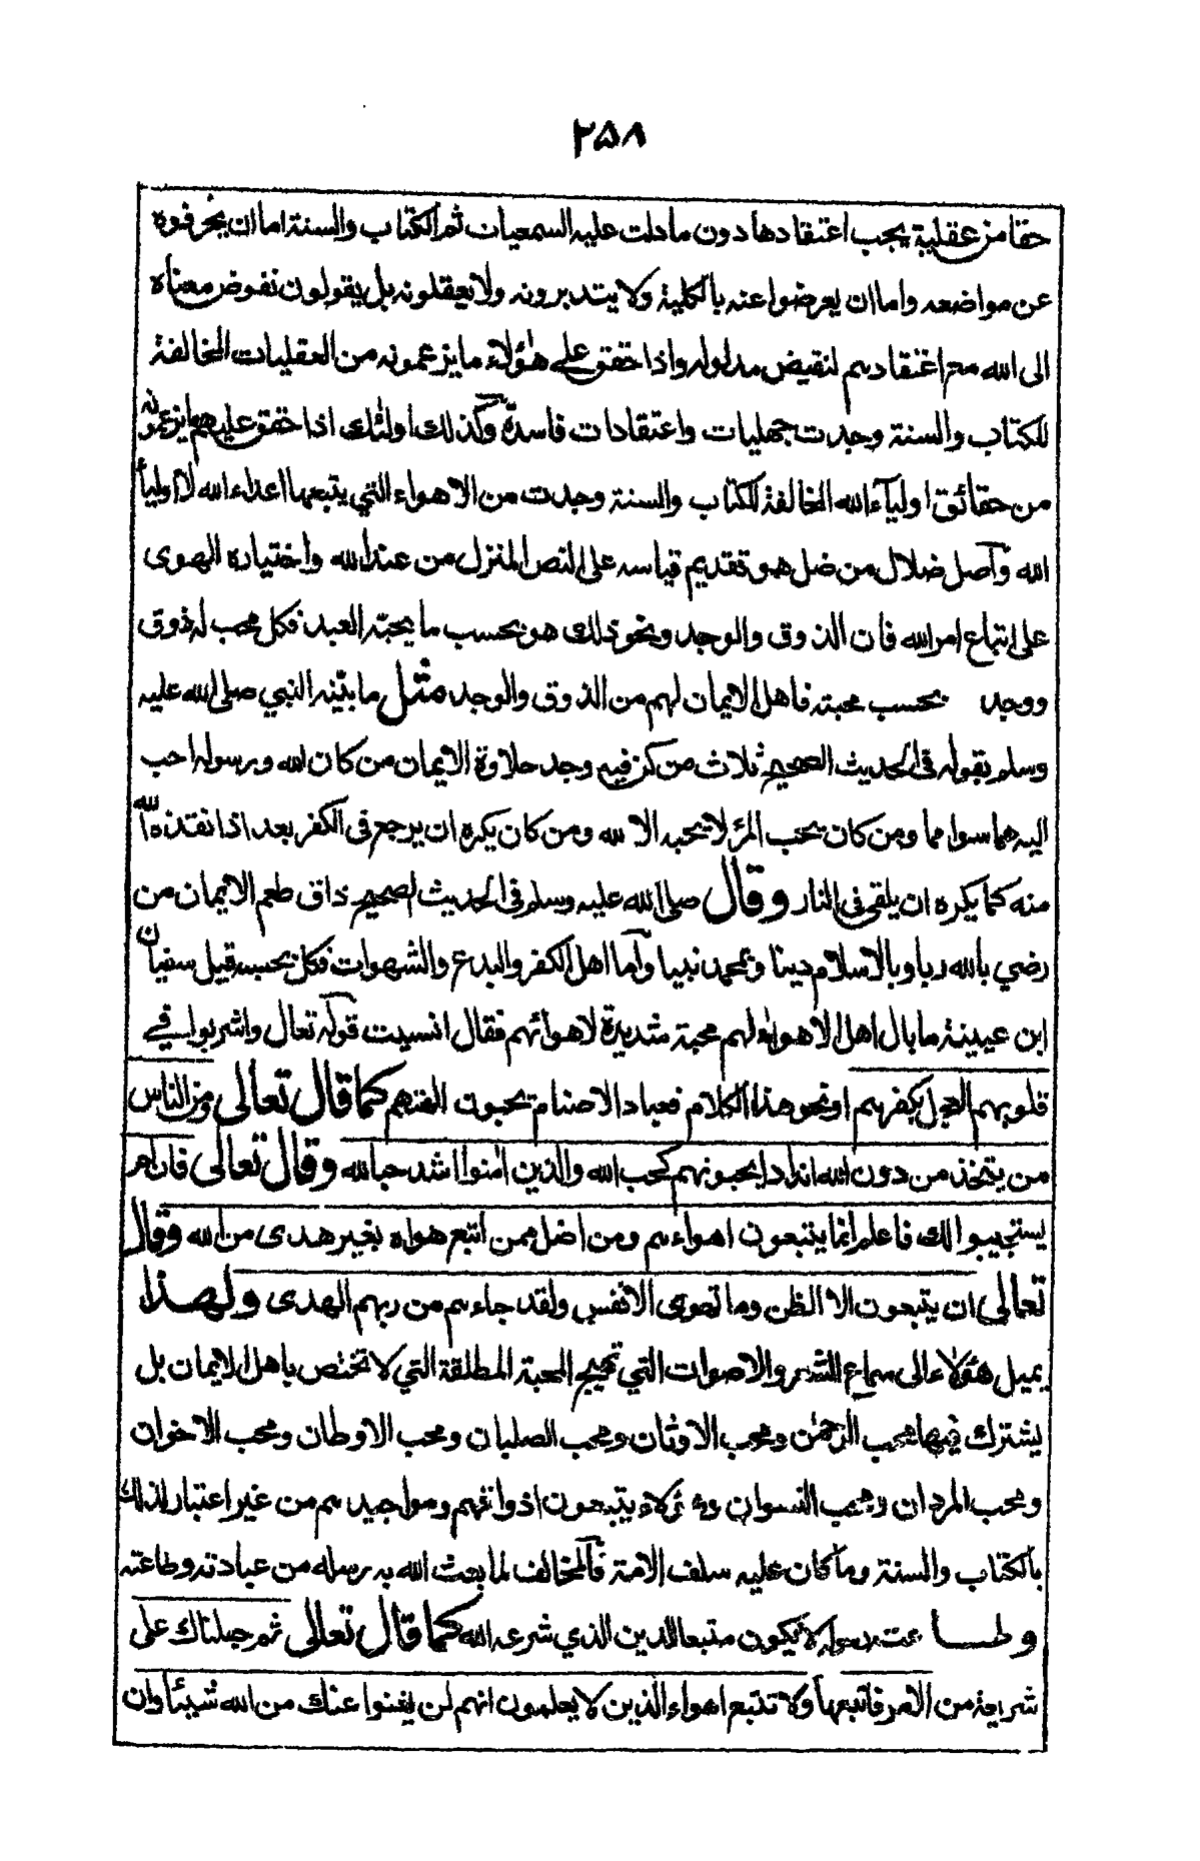 ٢٥٨
حقا من عقلية يجب اعتقادها دون ما دلت عليه السمعيات ثم الكتاب والسنة اما ان يحرفوه
عن مواضعه واما ان يعرضوا عنه بالكلية ولا يتدبرونه ولا يعقلونه بل يقولون نفوض معناه
الى الله مع اعتقادهم لنقيض مدلوله واذا حقق على هؤلاء ما يزعمونه من العقليات المخالفة
للكتاب والسنة وجدت جهليات واعتقادات فاسدة وكذلك اولئك اذا حقق عليهم ما يزعمونه
من حقائق اولياء الله المخالفة للكتاب والسنة وجدت من الاهواء التي يتبعها اعداء الله لا اولياء
الله وأصل ضلال من ضل هو تقديم قياسه على النص المنزل من عند الله واختياره الهوى
على اتباع امر الله فان الذوق والوجد ونحو ذلك هو بحسب ما يحبه العبد فكل محب له ذوق
ووجد بحسب محبته فاهل الايمان لهم من الذوق والوجد مثل ما بينه النبي صلى الله عليه
وسلم بقوله في الحديث الصحيح ثلاث من كن فيه وجد حلاوة الايمان من كان الله ورسوله احب
اليه مما سواهما ومن كان يحب المرء لا يحبه الا لله ومن كان يكره ان يرجع في الكفر بعد اذ انقذه الله
منه كما يكره ان يلقى في النار وقال صلى الله عليه وسلم في الحديث الصحيح ذاق طعم الايمان من
رضي بالله ربا وبالاسلام دينا وبمحمد نبيا وأما اهل الكفر والبدع والشهوات فكل بحسبه قيل سفيان
ابن عيينة ما بال اهل الاهواء لهم محبة شديدة لاهوائهم فقال انسيت قوله تعالى واشربوا في
قلوبهم العجل بكفرهم او نحو هذا الكلام فعباد الاصنام يحبون الهتهم كما قال تعالى ومن الناس
من يتخذ من دون الله اندادا يحبونهم كحب الله والذين امنوا اشد حبا لله وقال تعالى فان لم
يستجيبوا لك فاعلم انما يتبعون اهواءهم ومن اضل ممن اتبع هواه بغير هدى من الله وقال
تعالى ان يتبعون الا الظن وما تهوى الانفس ولقد جاءهم من ربهم الهدى ولهذا
يميل هؤلاء الى سماع الشعر والاصوات التي تهيج المحبة المطلقة التي لا تختص باهل الايمان بل
يشترك فيها محب الرحمن ومحب الاوثان ومحب الصلبان ومحب الاوطان ومحب الاخوان
ومحب المردان ومحب النسوان وهؤلاء يتبعون اذواقهم ومواجيدهم من غير اعتبار لذلك
بالكتاب والسنة وما كان عليه سلف الامة فالمخالف لما بعث الله به رسله من عبادته وطاعته
وطاعت رسوله لا يكون متبعا للدين الذي شرعه الله كما قال تعالى ثم جعلناك على
شريعة من الامر فاتبعها ولا تتبع اهواء الذين لا يعلمون انهم لن يغنوا عنك من الله شيئا وان